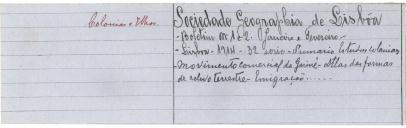 Colonias e Ilhas.
Sociedade Geographia de Lisbôa
- Boletim Nº 1 e 2. Janeiro e Fevereiro -
- Lisbôa - 1914 - 32 serie - Sumario Estudos coloniaes
- Movimento comercial da Guiné - Atlas das formas
de relevo terrestre - Emigração......